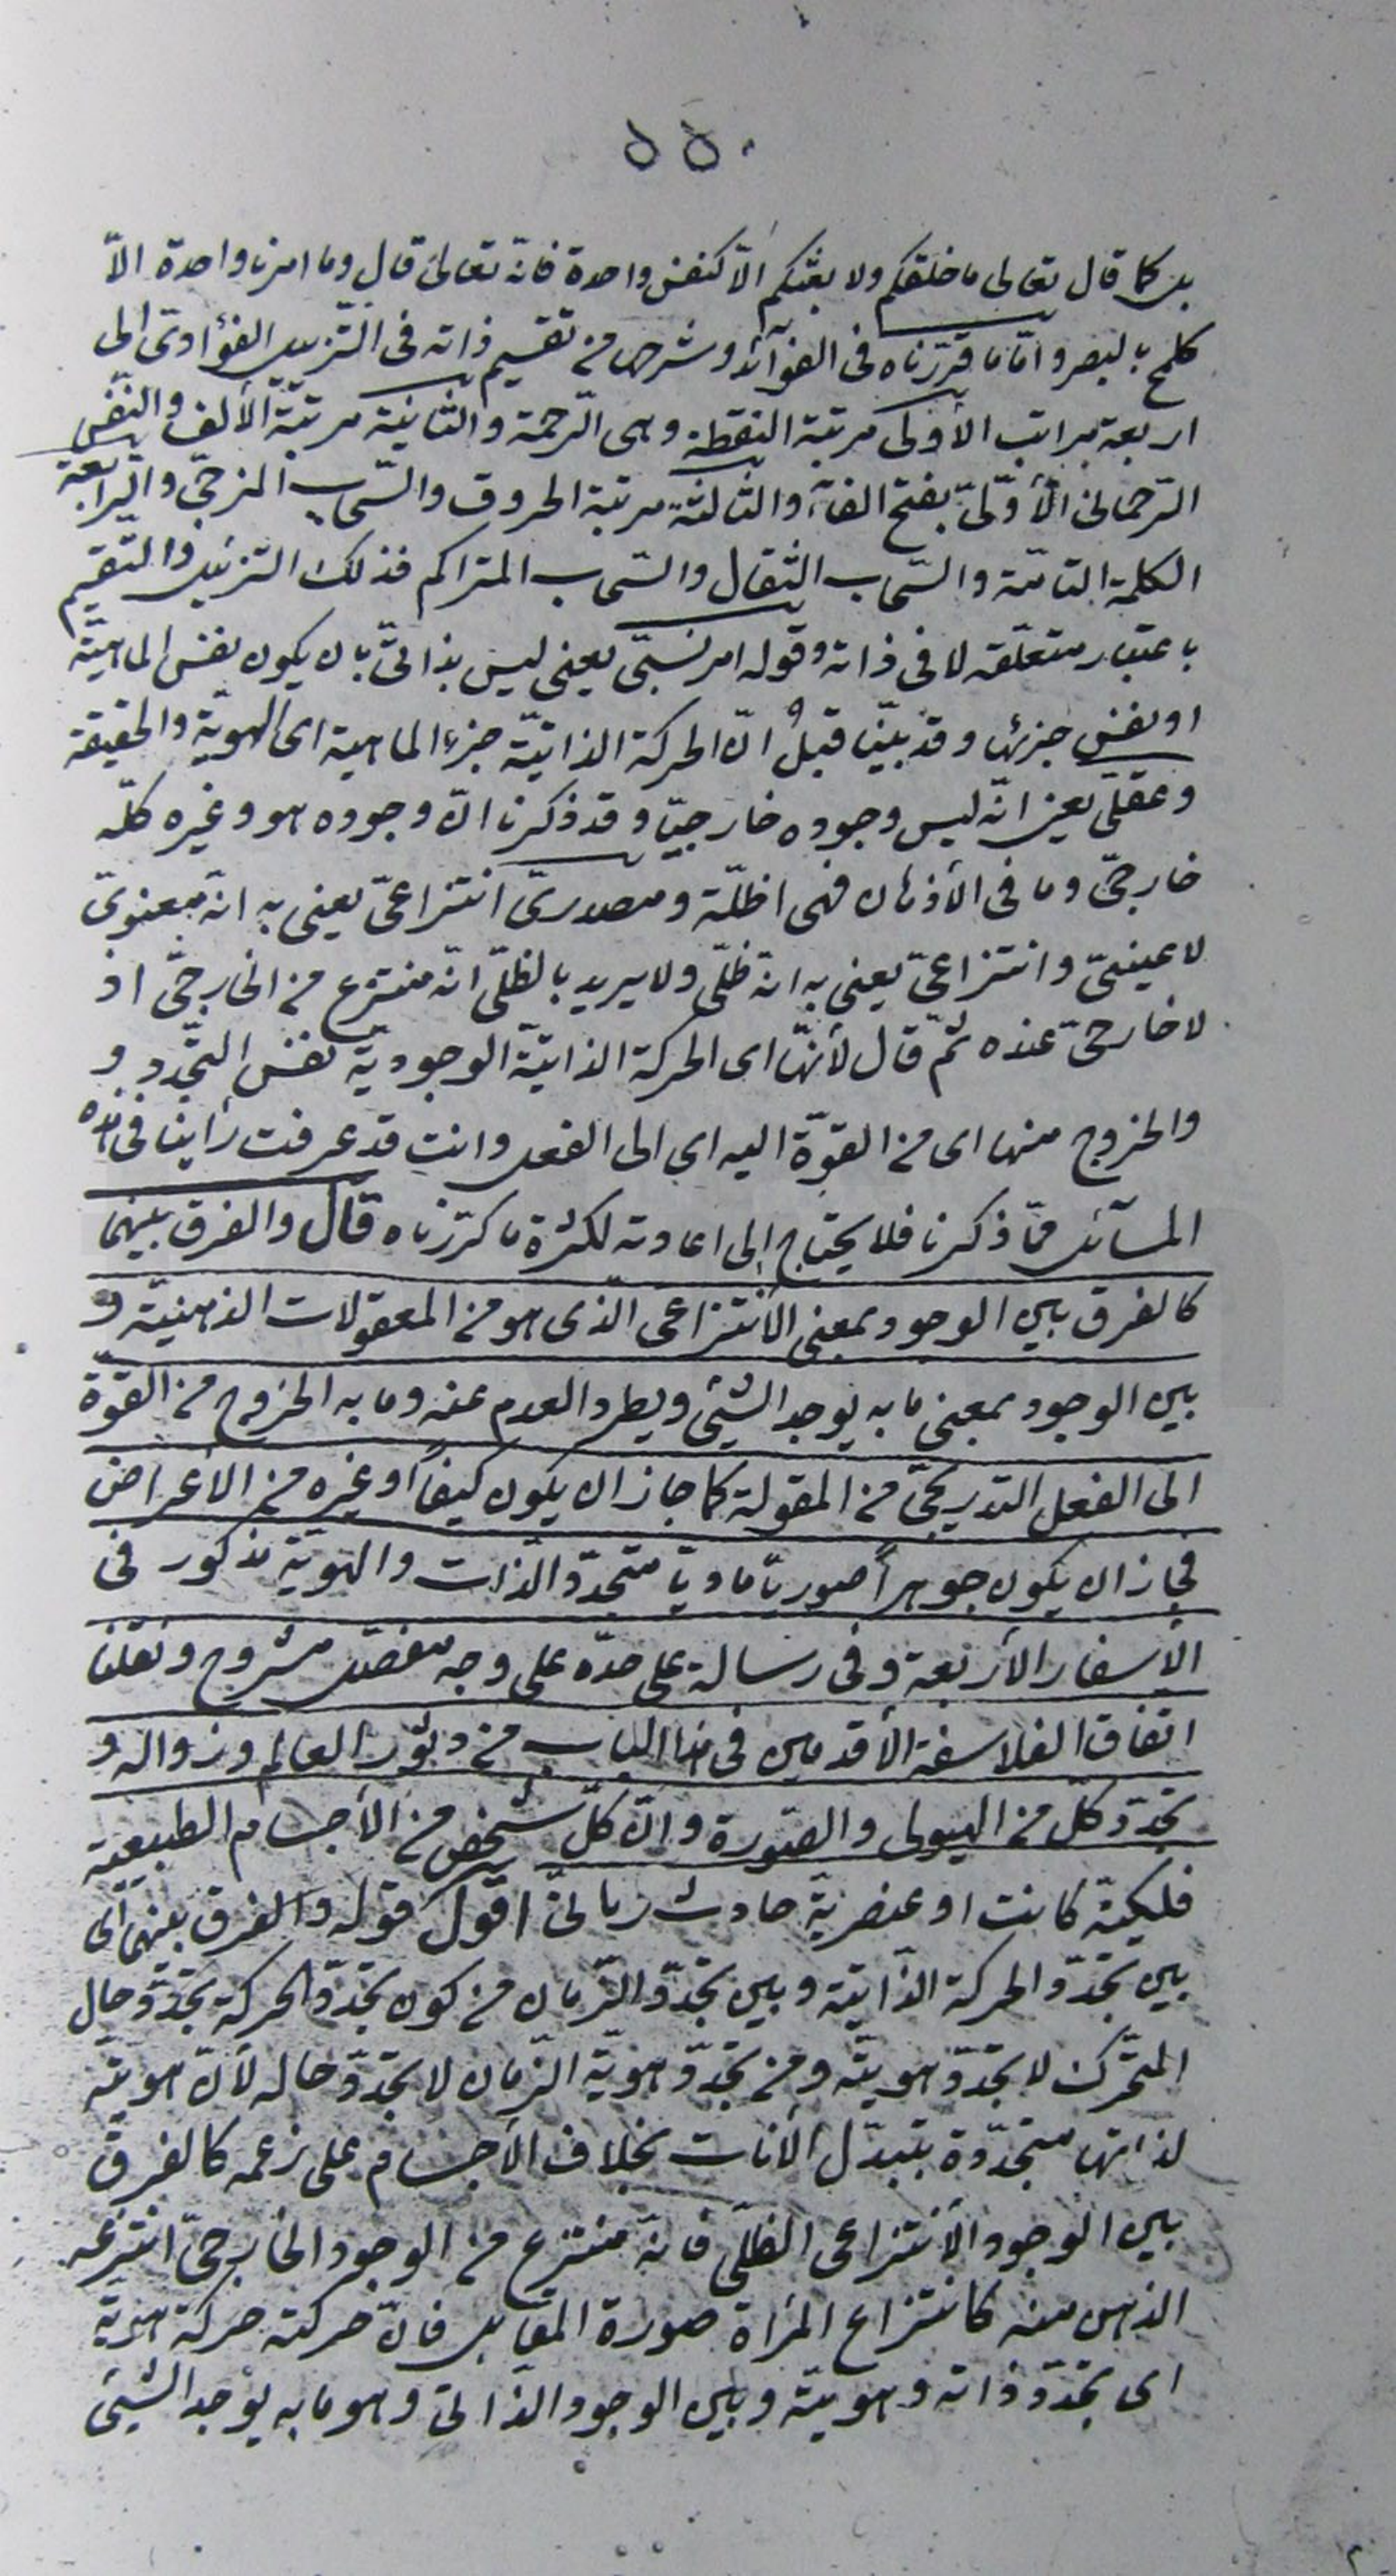 ٥٥٠
بل كما قال تعالى ما خلقكم ولا بعثكم الّا كنفس واحدة فانّه تعالى قال وما امرنا واحدة الّا
كلمح بالبصر وامّا ما قرّرناه فى الفوآئد وشرحه من تقسيم ذاته فى التّنزيل الفؤادىّ الى
اربعة مراتب الأولى مرتبة النقطة وهى الرّحمة والثّانية مرتبة الألف والنّفس
الرّحمانى الأوّلىّ بفتح الفآء والثالثة مرتبة الحروف والسّحاب المزجىّ والرّابعة
الكلمة التامّة والسّحاب الثقال والسّحاب المتراكم فذلك التنزيل والتّقسيم
باعتبار متعلّقه لا فى ذاته وقوله امر نسبىّ يعنى ليس بذاتىّ بان يكون نفس الماهيّة
او نفس جزئها وقد بيّنّا قبلُ انّ الحركة الذاتيّة جزء الماهية اى الهويّة والحقيقة
وعقلىّ يعنى انّه ليس وجوده خارجيّا وقد ذكرنا انّ وجوده هو وغيره كلّه
خارجىّ وما فى الأذهان فهى اظلّة ومصدرىّ انتزاعىّ يعنى به انّه معنوىّ
لا عينىّ وانتزاعىّ يعنى به انّه ظلّى ولا يريد بالظلّى انّه منتزع من الخارجىّ اذ
لا خارجىّ عنده ثمّ قال لأنّها اى الحركة الذاتيّة الوجوديّة نفس التجّدد و
والخروج منها اى من القوّة اليه اى الى الفعل وانت قد عرفت رأينا فى هذه
المسآئل ممّا ذكرنا فلا يحتاج إلى اعادته لكثرة ما كرّرناه قال والفرق بينهما
كالفرق بين الوجود بمعنى الأنتزاعى الّذى هو من المعقولات الذهنيّة و
بين الوجود بمعنى ما به يوجد الشّيئ ويطرد العدم عنه وما به الخروج من القوّة
الى الفعل التدريجىّ من المقولة كما جاز ان يكون كيفاً او غيره من الأعراض
فجاز ان يكون جوهراً صوريّا ماديّا متجدّد الذّات والهويّة مذكور فى
الأسفار الأربعة وفى رسالة على حدّه على وجه مفصّل مشروح ونقلنا
اتفاق الفلاسفة الأقدمين فى هذا الباب من دثور العالم وزواله و
تجدّد كلّ من الهيولى والصّورة وانّ كلّ شخص من الأجسام الطبيعية
فلكيّة كانت او عنصريّة حادث زمانىّ اقول قوله والفرق بينهما اى
بين تجدّد الحركة الذّاتية وبين تجدّد الزّمان من كون تجدّد الحركة تجدّد حال
المتحّرك لا تجدّد هويّته ومن تجدّد هويّة الزّمان لا تجدّد حاله لأنّ هويّته
لذاتها متجدّدة بتبدّل الأنات بخلاف الأجسام على زعمه كالفرق
بين الوجود الأنتزاعى الظلّى فانّه منتزع من الوجود الخارجىّ انتزعه
الذهن منه كانتزاع المرأة صورة المقابل فانّ حركته حركة هويّة
اى تجدّد ذاته وهويّته وبين الوجود الذاتىّ وهو ما به يوجد الشّيئ